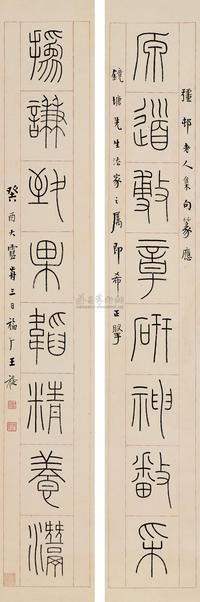 彊邨老人集句篆應
原道敷章研神采
鏡塘先生法家之屬即希正
撝謙致果韜精養
癸酉大雪前三日福厂王禔